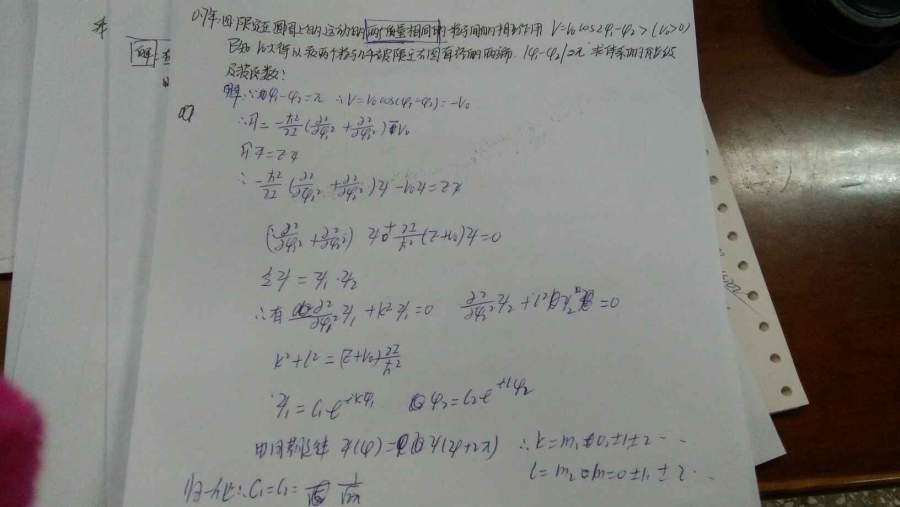 07年.图.限定在圆周上的运动的两个质量相同的粒子间的相互作用 V=V₀cos(φ₁-φ₂) (V₀>0)
已知 V₀ 两个粒子几乎被限定在圆直径的两端 |φ₁-φ₂|≈π 求体系的
及波函数:
解:∵φ₁-φ₂=π ∴V=V₀cos(φ₁-φ₂)=-V₀
∴Ĥ=-ħ²/2I(∂²/∂φ₁²+∂²/∂φ₂²)-V₀
Ĥψ=Eψ
∴-ħ²/2I(∂²/∂φ₁²+∂²/∂φ₂²)ψ-V₀ψ=Eψ
(∂²/∂φ₁²+∂²/∂φ₂²)ψ+2I/ħ²(E+V₀)ψ=0
令ψ=ψ₁·ψ₂
∴有 ∂²/∂φ₁²ψ₁+k²ψ₁=0 ∂²/∂φ₂²ψ₂+l²ψ₂=0
k²+l²=(E+V₀)2I/ħ²
ψ₁=C₁e^{ikφ₁} ψ₂=C₂e^{ilφ₂}
由周期边条 ψ(φ)=ψ(φ+2π) ∴k=m₁=0,±1,±2…
l=m₂=0,±1,±2…
归一化∴C₁=C₂=1/√2π
解: